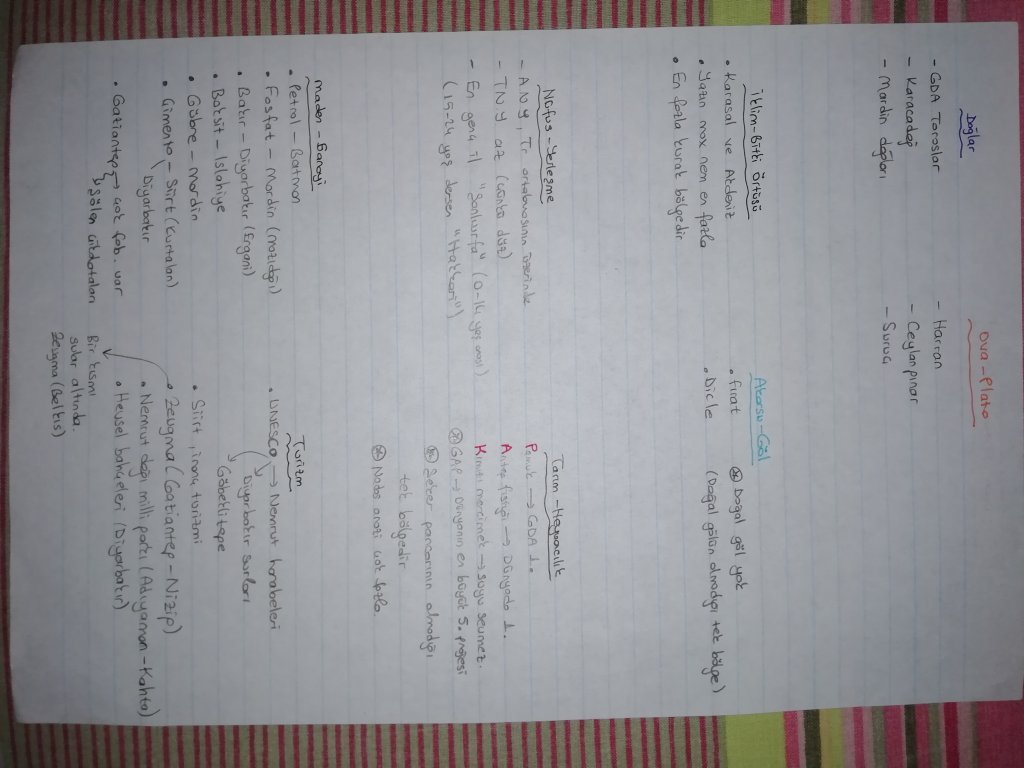 Dağlar
- GDA Toroslar
- Karacadağ
- Mardin dağları
Ova-Plato
- Harran
- Ceylanpınar
- Suruç
İklim-Bitki Örtüsü
• Karasal ve Akdeniz
• Yazın max nem en fazla
• En fazla kurak bölgedir
Akarsu-Göl
• Fırat
• Dicle
* Doğal göl yok
(Doğal gölün olmadığı tek bölge)
Nüfus-Yerleşme
- ANY, Tr ortalamasının üzerinde
- TNY az (çünkü düz)
- En genç il "Şanlıurfa" (0-14 yaş arası)
(15-24 yaş dersen "Hakkari")
Tarım-Hayvancılık
Pamuk → GDA 1.
Antep fıstığı → Dünyada 1.
Kırmızı mercimek → suyu sevmez.
* GAP → Dünyanın en büyük 5. projesi
* Şeker pancarının olmadığı
tek bölgedir
* Nadas arazi çok fazla
maden-Sanayi
• Petrol - Batman
• Fosfat - Mardin (mazıdağı)
• Bakır - Diyarbakır (Ergani)
• Boksit - Islahiye
• Gübre - mardin
• Çimento - Siirt (Kurtalan)
Diyarbakır
• Gatiantep → çok fab. var
→ şölen çikolataları
Turizm
• UNESCO → Nemrut harabeleri
→ Diyarbakır surları
→ Göbeklitepe
• Siirt, inanç turizmi
• Zeugma (Gatiantep-Nizip)
• Nemrut dağı milli parkı (Adıyaman-Kahta)
• Hevsel bahçeleri (Diyarbakır)
Bir kısmı
sular altında.
Zeugma (Belkıs)